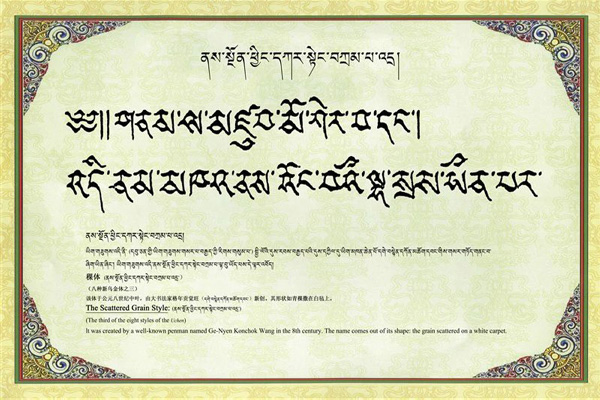 ནས་སྔོན་ཕྱིང་དཀར་སྟེང་བཀྲམ་པ་འདྲ།
༄༅།། གནམ་ལ་མཛུབ་མོ་ཀེར་བ་དང་།
འདི་ནམ་མཁའ་ནས་འོང་བའི་ལྷ་སྲས་ཡིན་པར་
ནས་སྔོན་ཕྱིང་དཀར་སྟེང་བཀྲམ་པ་འདྲ།
稞体 (ནས་སྔོན་ཕྱིང་དཀར་སྟེང་བཀྲམ་པ་འདྲ་)
（八种新乌金体之三）
该体于公元八世纪中叶，由大书法家格年贡觉旺（དགེ་བསྙེན་དཀོན་མཆོག་དབང་）新创，其形状如青稞撒在白毡上。
The Scattered Grain Style: (ནས་སྔོན་ཕྱིང་དཀར་སྟེང་བཀྲམ་པ་འདྲ་)
(The third of the eight styles of the Uchen)
It was created by a well-known penman named Ge-Nyen Konchok Wang in the 8th century. The name comes out of its shape: the grain scattered on a white carpet.